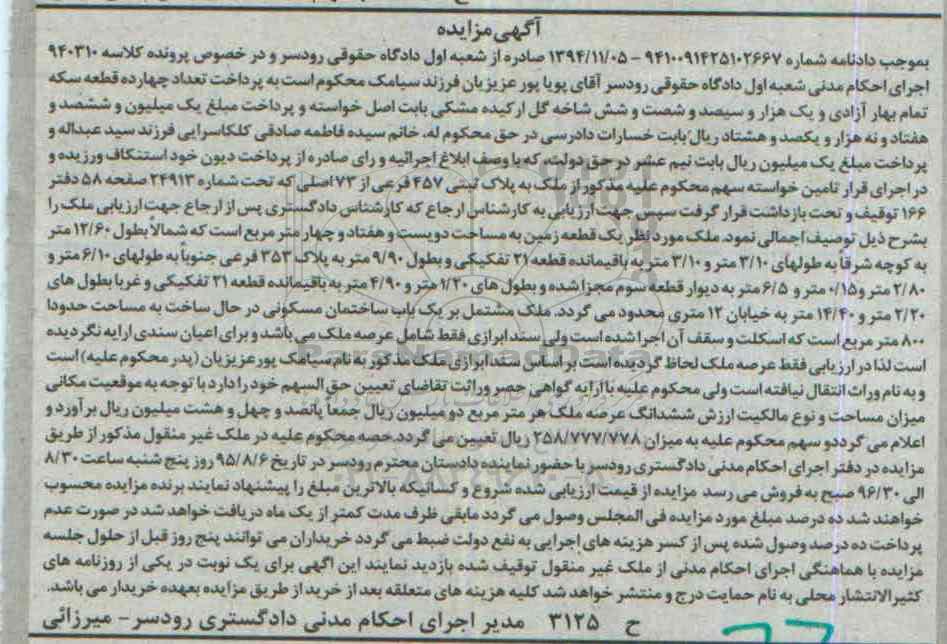 آگهی مزایده
بموجب دادنامه شماره ۹۴۱۰۰۹۱۴۲۵۱۰۲۶۶۷ - ۱۳۹۴/۱۱/۰۵ صادره از شعبه اول دادگاه حقوقی رودسر و در خصوص پرونده کلاسه ۹۴۰۳۱۰
اجرای احکام مدنی شعبه اول دادگاه حقوقی رودسر آقای پویا پور عزیزیان فرزند سیامک محکوم است به پرداخت تعداد چهارده قطعه سکه
تمام بهار آزادی و یک هزار و سیصد و شصت و شش شاخه گل ارکیده مشکی بابت اصل خواسته و پرداخت مبلغ یک میلیون و ششصد و
هفتاد و نه هزار و یکصد و هشتاد ریال بابت خسارات دادرسی در حق محکوم له، خانم سیده فاطمه صادقی کلکاسرایی فرزند سید عبداله و
پرداخت مبلغ یک میلیون ریال بابت نیم عشر در حق دولت، که با وصف ابلاغ اجرائیه و رای صادره از پرداخت دیون خود استنکاف ورزیده و
در اجرای قرار تامین خواسته سهم محکوم علیه مذکور از ملک به پلاک ثبتی ۴۵۷ فرعی از ۷۳ اصلی که تحت شماره ۲۴۹۱۳ صفحه ۵۸ دفتر
۱۶۶ توقیف و تحت بازداشت قرار گرفت سپس جهت ارزیابی به کارشناس ارجاع که کارشناس دادگستری پس از ارجاع جهت ارزیابی ملک را
بشرح ذیل توصیف اجمالی نمود. ملک مورد نظر یک قطعه زمین به مساحت دویست و هفتاد و چهار متر مربع است که شمالاً بطول ۱۲/۶۰ متر
به کوچه شرقاً به طولهای ۳/۱۰ متر و ۳/۱۰ متر به باقیمانده قطعه ۲۱ تفکیکی و بطول ۹/۹۰ متر به پلاک ۳۵۳ فرعی جنوباً به طولهای ۶/۱۰ متر و
۲/۸۰ متر و ۰/۱۵ متر و ۶/۵ متر به دیوار قطعه سوم مجزا شده و بطول های ۱/۲۰ متر و ۴/۹۰ متر به باقیمانده قطعه ۲۱ تفکیکی و غربا بطول های
۲/۲۰ متر و ۱۴/۴۰ متر به خیابان ۱۲ متری محدود می گردد. ملک مشتمل بر یک باب ساختمان مسکونی در حال ساخت به مساحت حدودا
۸۰۰ متر مربع است که اسکلت و سقف آن اجرا شده است ولی سند ابرازی فقط شامل عرصه ملک می باشد و برای اعیان سندی ارایه نگردیده
است لذا در ارزیابی فقط عرصه ملک لحاظ گردیده است بر اساس سند ابرازی ملک مذکور به نام سیامک پور عزیزیان (پدر محکوم علیه) است
و به نام وراث انتقال نیافته است ولی محکوم علیه با ارایه گواهی حصر وراثت تقاضای تعیین حق السهم خود را دارد با توجه به موقعیت مکانی
میزان مساحت و نوع مالکیت ارزش ششدانگ عرصه ملک هر متر مربع دو میلیون ریال جمعا پانصد و چهل و هشت میلیون ریال برآورد و
اعلام می گردد و سهم محکوم علیه به میزان ۲۵۸/۷۷۷/۷۷۸ ریال تعیین می گردد. حصه محکوم علیه در ملک غیر منقول مذکور از طریق
مزایده در دفتر اجرای احکام مدنی دادگستری رودسر با حضور نماینده دادستان محترم رودسر در تاریخ ۹۵/۸/۶ روز پنج شنبه ساعت ۸/۳۰
الی ۹۶/۳۰ صبح به فروش می رسد مزایده از قیمت ارزیابی شده شروع و کسانیکه بالاترین مبلغ را پیشنهاد نمایند برنده مزایده محسوب
خواهند شد ده درصد مبلغ مورد مزایده فی المجلس وصول می گردد مابقی ظرف مدت کمتر از یک ماه دریافت خواهد شد در صورت عدم
پرداخت ده درصد وصول شده پس از کسر هزینه های اجرایی به نفع دولت ضبط می گردد خریداران می توانند پنج روز قبل از حلول جلسه
مزایده با هماهنگی اجرای احکام مدنی از ملک غیر منقول توقیف شده بازدید نمایند این آگهی برای یک نوبت در یکی از روزنامه های
کثیرالانتشار محلی به نام حمایت درج و منتشر خواهد شد کلیه هزینه های متعلقه بعد از خرید از طریق مزایده بعهده خریدار می باشد.
ح ۳۱۲۵ مدیر اجرای احکام مدنی دادگستری رودسر - میرزائی